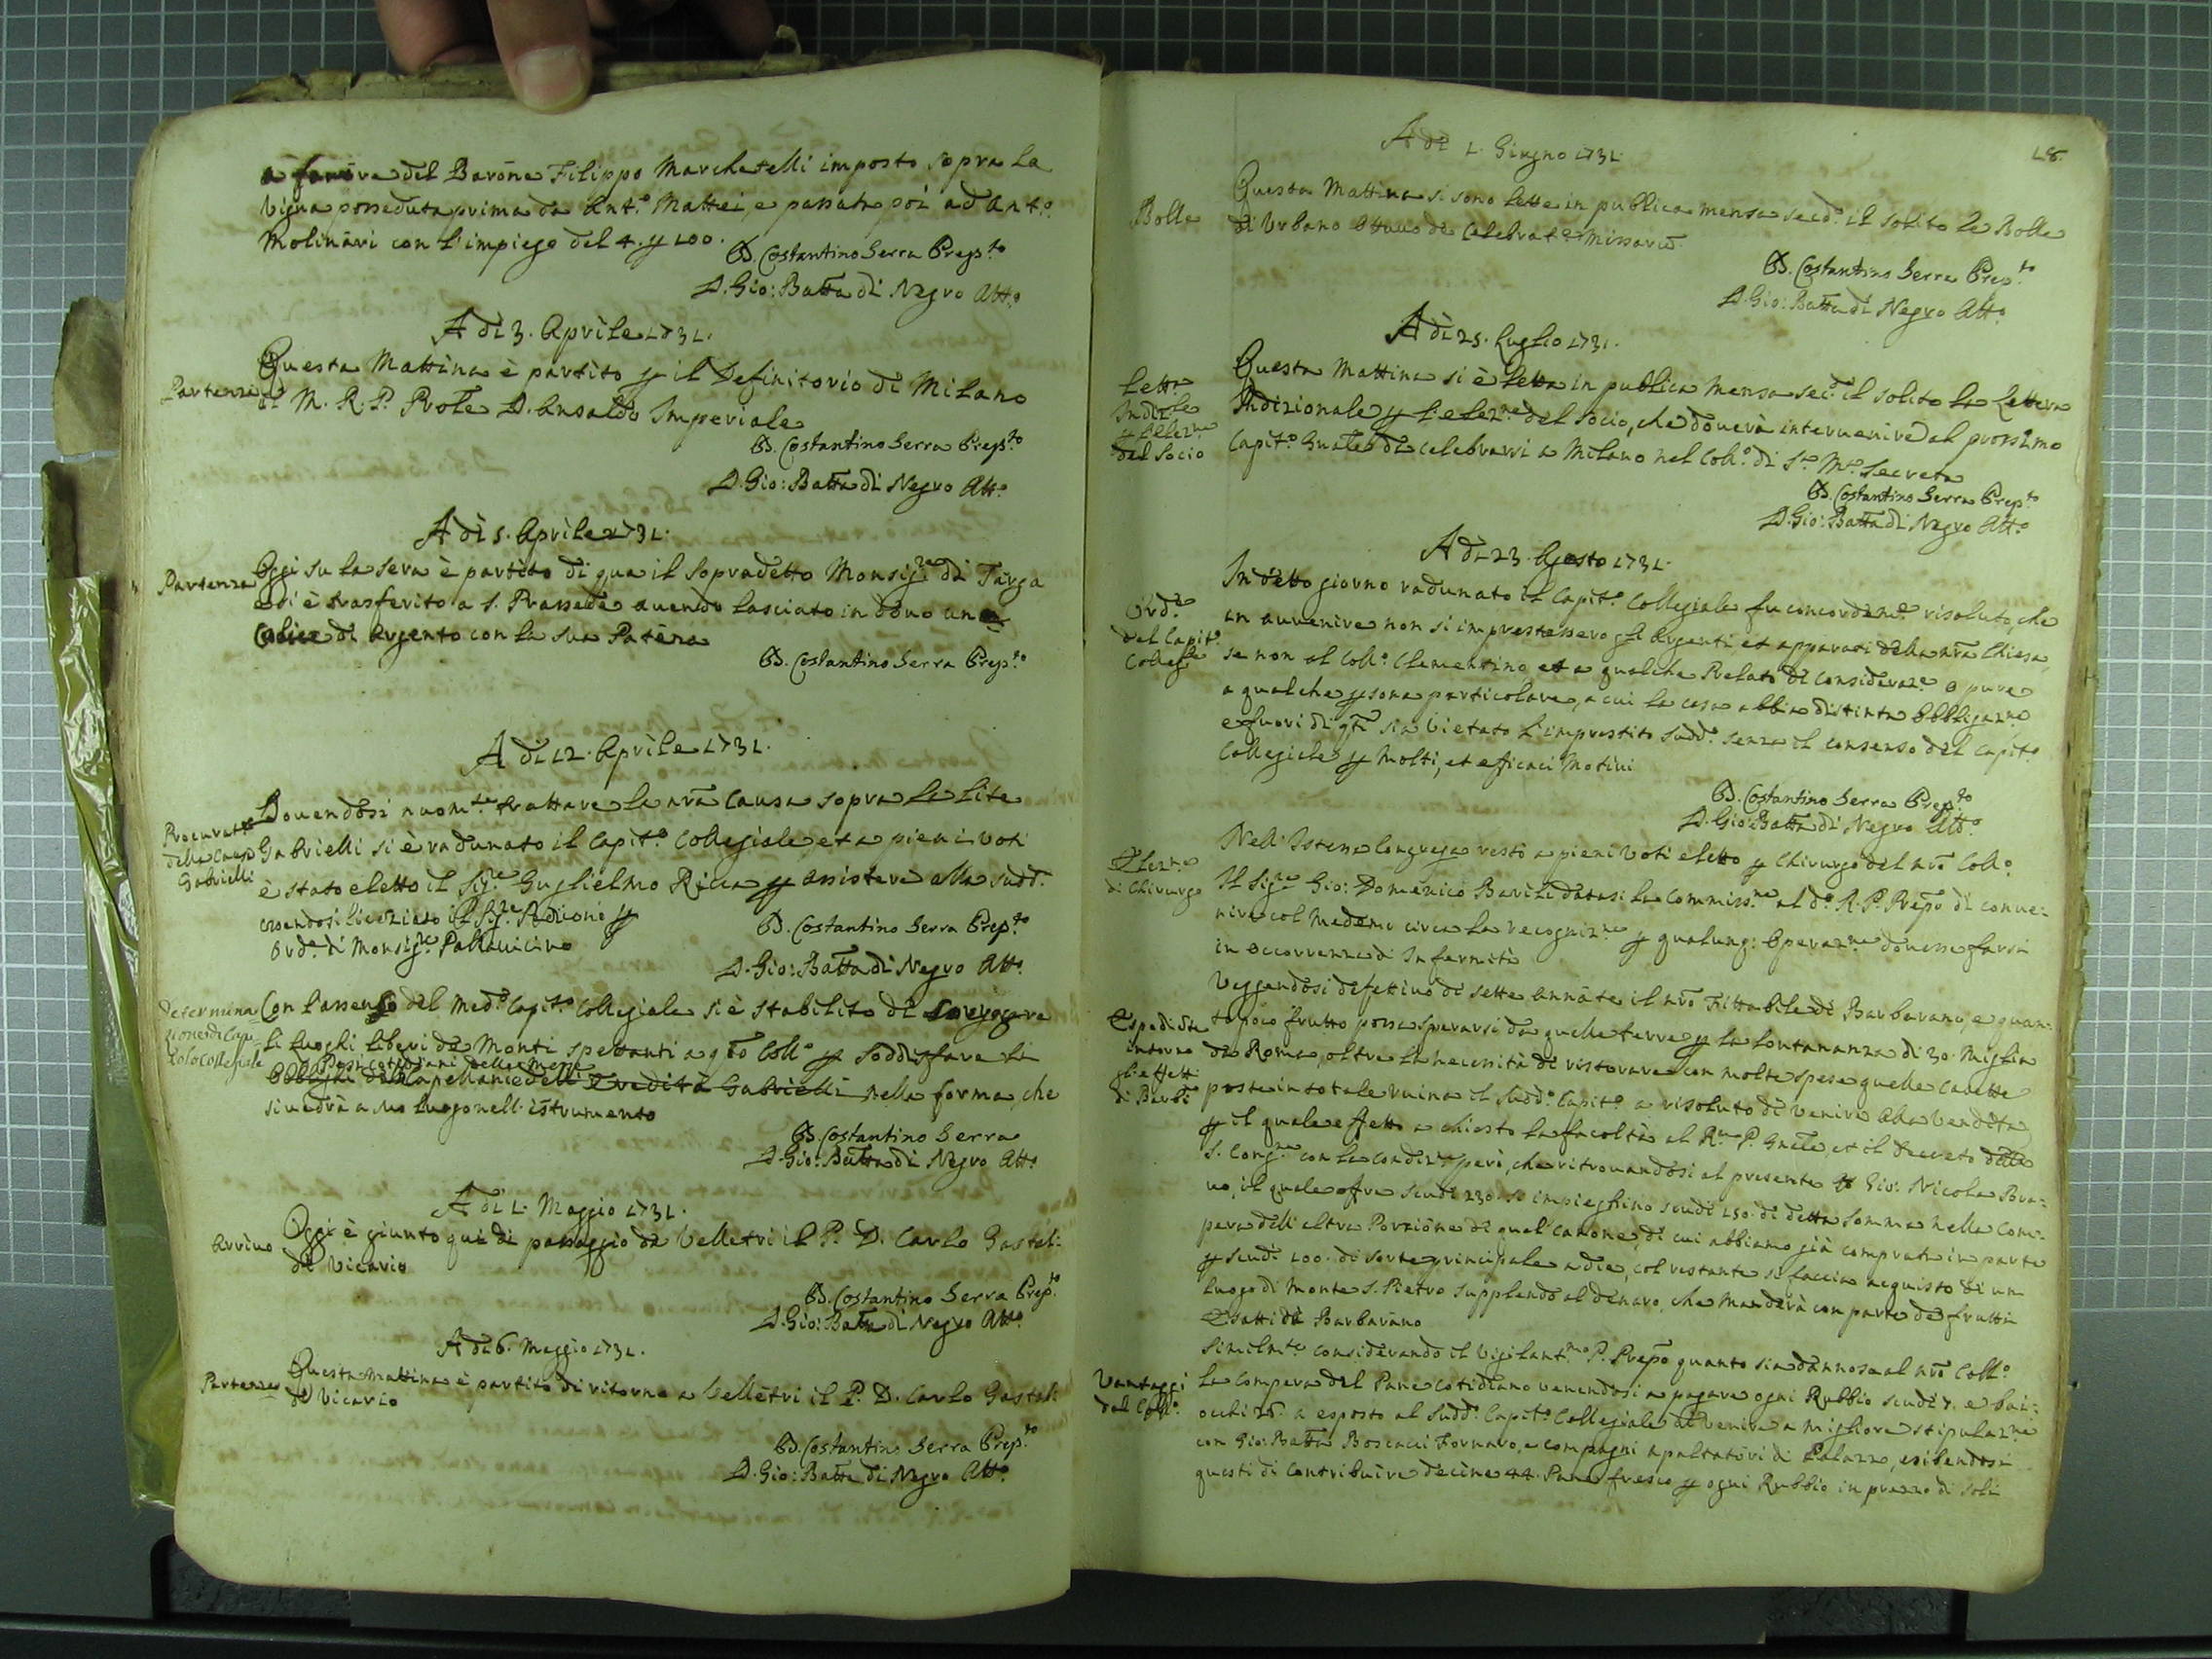 a favore del Barone Filippo Marchetelli imposto sopra la
Vigna posseduta prima da Ant.º Mattei, e passata poi ad Ant.º
Molinari con l'impiego del 4. p 100.
D. Costantino Serra Prep.to
D. Gio: Batta di Negro Att.º
A dì 3. Aprile 1731.
Partenza
Questa Mattina è partito p il Definitorio di Milano
il M. R. P. Prole D. Ansaldo Imperiale
D. Costantino Serra Prep.to
D. Gio: Batta di Negro Att.º
A dì 5. Aprile 1731.
Partenza
Oggi su la sera è partito di qua il sopradetto Monsig.re di Targa
e si è trasferito a S. Prassede avendo lasciato in dono un
Calice di Argento con la sua Patena
D. Costantino Serra Prep.to
A dì 12. Aprile 1731.
Procurat.e
della Causa
Gabrielli
Dovendosi nuom.te trattare la nra Causa sopra la lite
Gabrielli si è radunato il Capit.º Collegiale, et a pieni voti
è stato eletto il Sig.re Guglielmo Ricca p assistere alla sudd.
essendosi licenziato il Sig.re Pedicono p
Ord.e di Monsig.re Pallavicino
D. Costantino Serra Prep.to
D. Gio: Batta di Negro Att.º
Determina=
zione di Capi=
tolo Collegiale
Con l'assenso del Med.º Capit.º Collegiale si è stabilito di
li luoghi liberi de Monti spettanti a qto Coll.º p soddisfare li
Pesi cotidiani delle Messe
Obblighi della Capellanie dell'Eredità Gabrielli nella forma, che
si vedrà a suo luogo nell'istrumento
D. Costantino Serra
D. Gio: Batta di Negro Att.º
A dì 1. Maggio 1731.
Arrivo
Oggi è giunto qui di passaggio da Velletri il P. D. Carlo Gastel:
di Vicario
D. Costantino Serra Prep.to
D. Gio: Batta di Negro Att.º
A dì 6. Maggio 1731.
Partenza
Questa Mattina è partito di ritorno a Velletri il P. D. Carlo Gastel:
di Vicario
D. Costantino Serra Prep.to
D. Gio: Batta di Negro Att.º
18.
A dì 1. Giugno 1731.
Bolle
Questa Mattina si sono lette in publica mensa secd.º il solito le Bolle
di Urbano Ottavo de Celebrat.e Missarũ.
D. Costantino Serra Prep.to
D. Gio: Batta di Negro Att.º
A dì 25. Luglio 1731.
Lett.a
Indiz.le
p l'elez.ne
del Socio
Questa Mattina si è letta in publica Mensa sec.d il solito la Lettera
Indizionale p l'elez.ne del Socio, che doverà intervenire al prossimo
Capit.º Gnale da celebrarsi a Milano nel Coll.º di S.ta M.a Secreta
D. Costantino Serra Prep.to
D. Gio: Batta di Negro Att.º
A dì 23. Agosto 1731.
Ord.e
del Capit.º
Colleg.le
In detto giorno radunato il Capit.º Collegiale fu concordem.e risoluto, che
in avvenire non si imprestassero gli Argenti et apparati della nra Chiesa,
se non al Coll.º Clementino, et a qualche Prelato di consideraz.e o pure
a qualche psona particolare, a cui la casa abbia distinta Obbligaz.ne
e fuori di qti sia vietato l'imprestito sudd.º senza il consenso del Capit.º
Collegiale p molti, et efficaci Motivi
D. Costantino Serra Prep.to
D. Gio: Batta di Negro Att.º
Elez.ne
di Chirurgo
Nell'Istessa Congrega restò a pieni voti eletto p Chirurgo del nro Coll.º
Il Sig.re Gio: Domenico Barili datasi la Commiss.ne al d.º R. P. Prepo di conve=
nire col Medemo circa la recogniz.ne p qualunq: Operaz.ne dovesse farsi
in occorrenza di Infermità
Espediente
intorno
gl'effetti
di Barb.º
Veggendosi defettivo di sette annate il nro Fittabile di Barbarano, e quan=
to poco frutto possa sperarsi da quelle terre p la lontananza di 30. Miglia
da Roma, oltre la necessità di ristorare con molte spese quelle Casette
poste in totale ruina il Sudd.º Capit.º a risoluto di venire alla Vendita
p il quale effetto a chiesto la facoltà al R.mo P. Gnale, et il Decreto della
S. Cong.ne con la condiz.ne però, che ritrovandosi al presente Gio: Nicola Bra=
vo, il quale offre scudi 230. si impieghino scudi 150. di detta somma nella Com=
pera dell'altra Porzione di quel canone, di cui abbiamo già comprata in parte
p scudi 100. di sorte principale a die, col restante si faccia acquisto di un
luogo di Monte S. Pietro supplendo al denaro, che Manderà con parte de frutti
Esatti da Barbarano
Vantaggi
del Coll.º
Similm.te considerando il Vigilant.mo P. Prepo quanto sia dannosa al nro Coll.º
la compera del Pane cotidiano venendosi a pagare ogni Rubbio scudi 7. e bai=
occhi 25. a esposto al Sudd.º Capit.º Collegiale di venire a migliore stipulaz.ne
con Gio: Batta Boscacci Fornaro, e compagni apaltatori di Palazzo, esibendosi
questi di contribuire decine 44. Pane fresco p ogni Rubbio in prezzo di soli